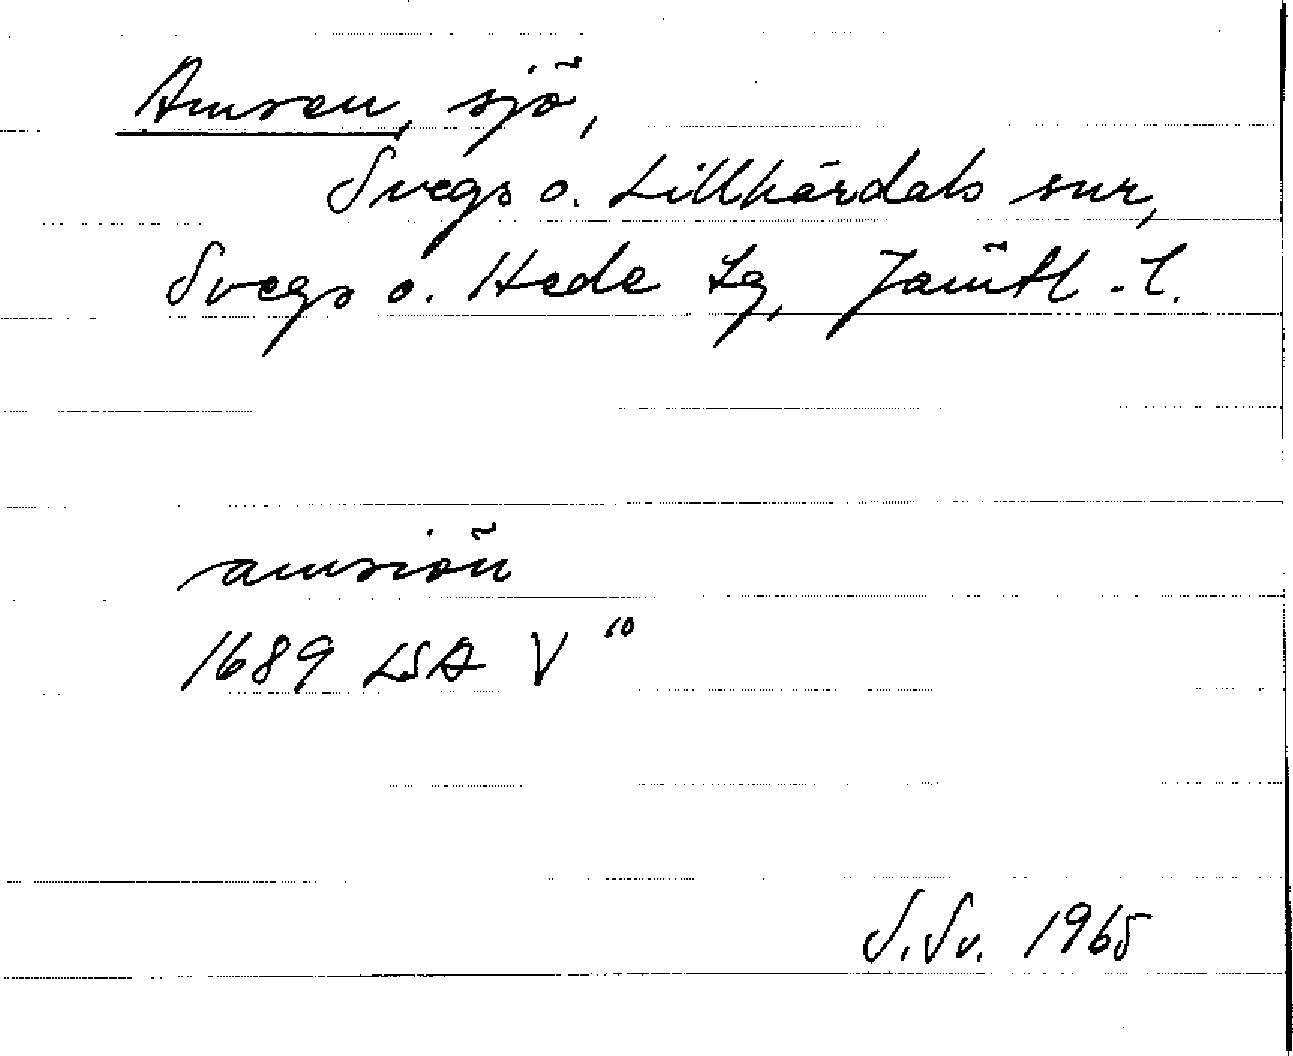 Amsen, sjö,
Svegs o. Lillhärdals snr,
Svegs o. Hede tg, Jämtl. l.
amsiön
1689 LSA V 10
S.Sv. 1965